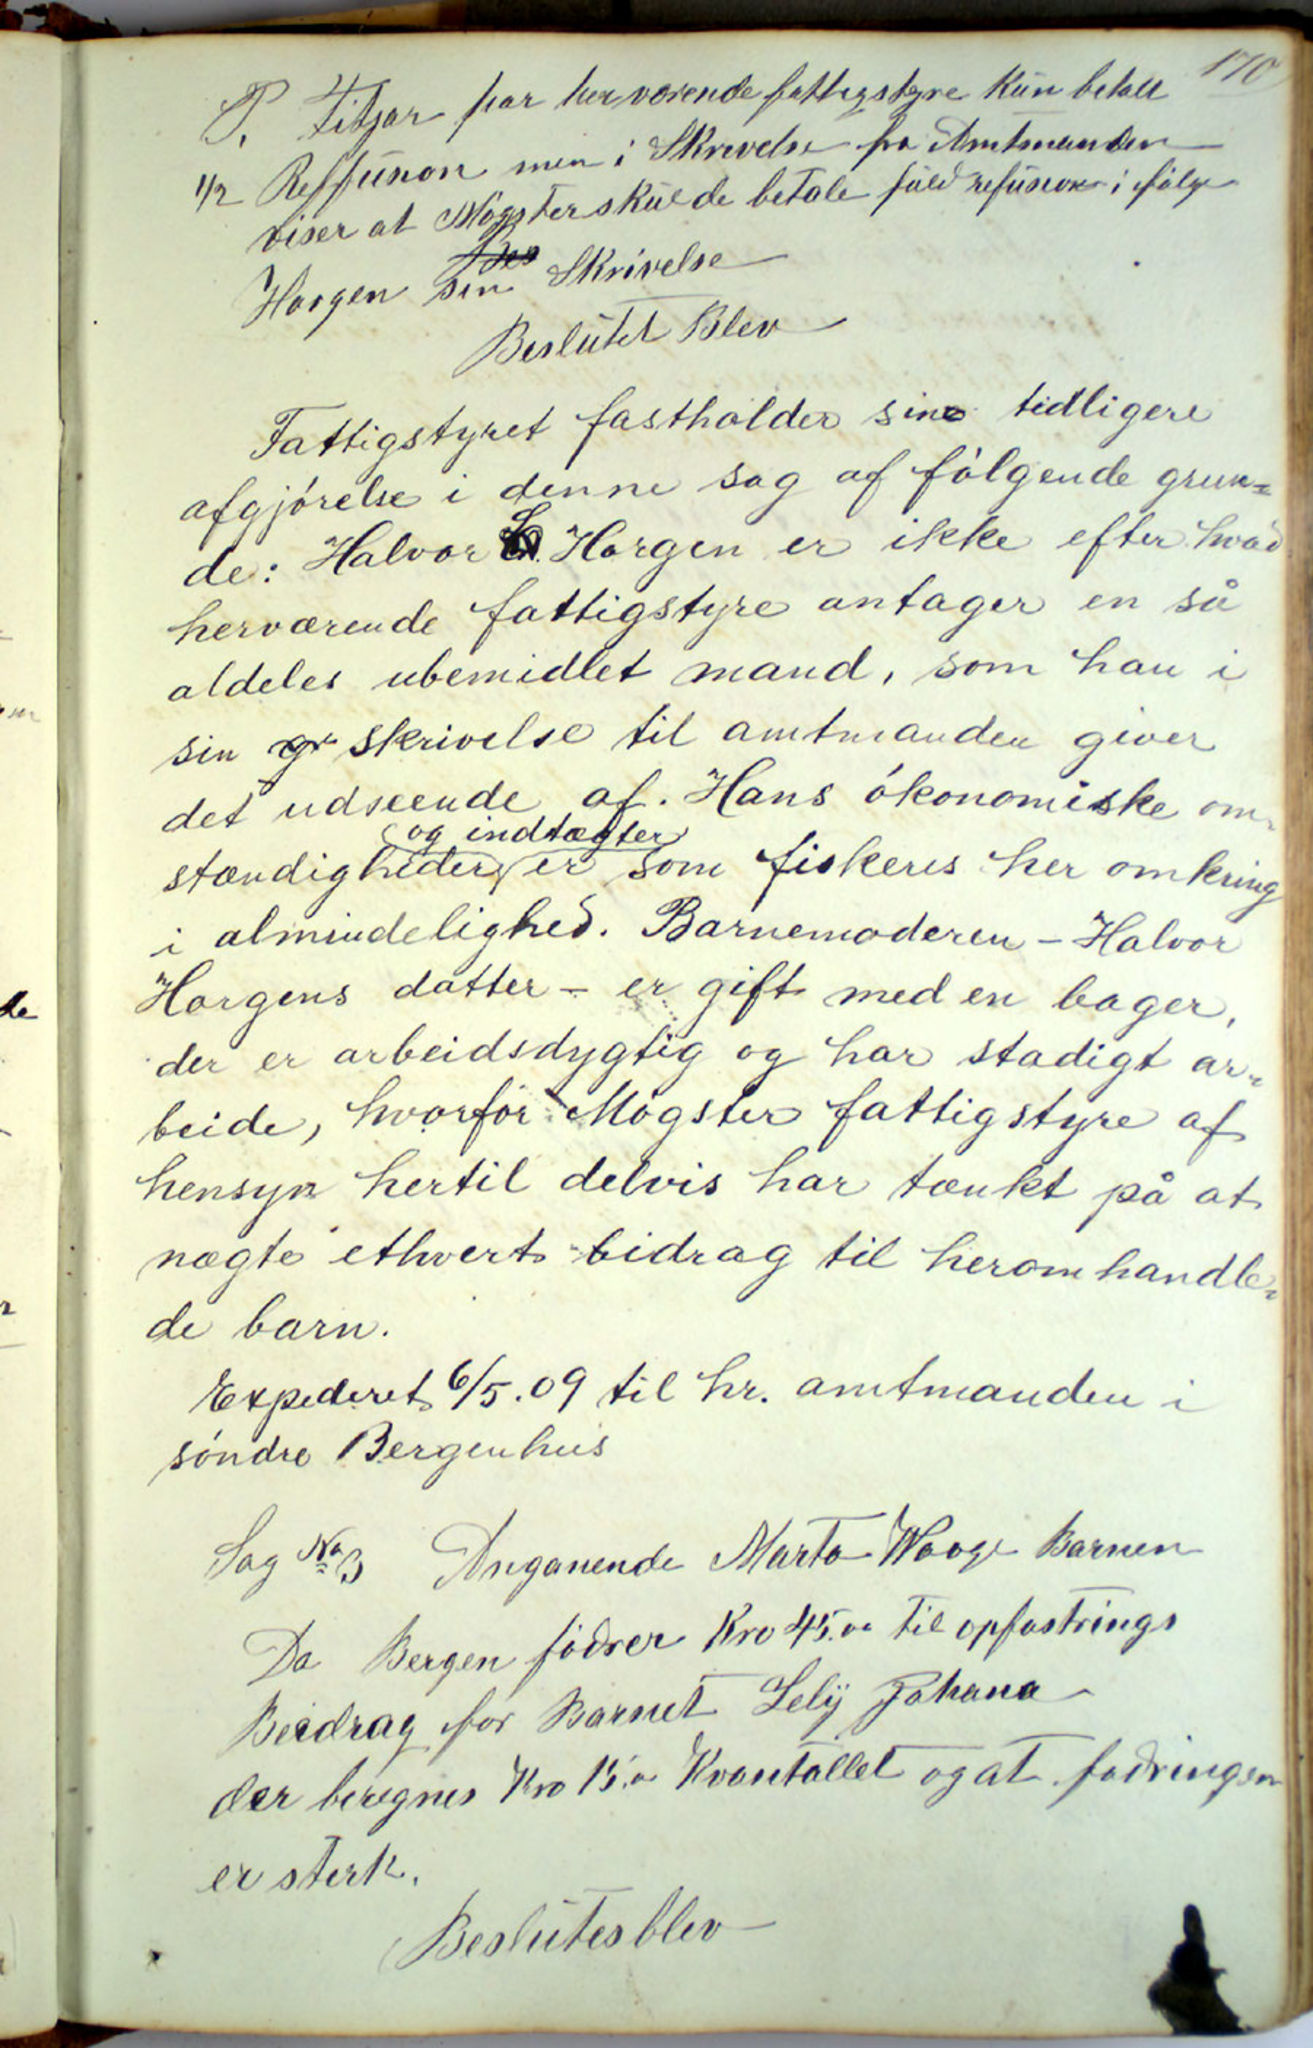 170
P. Fitjar har herværende fattigstyre kun betalt
1/2 Reffusion men i Skrivelse fra Amtmanden
viser at Møgster skulde betale fuld refusion i følge
Horgen sin Skrivelse
Beslutet Blev
Fattigstyret fastholder sine tidligere
afgjørelse i denne sag af følgende grun=
de: Halvor L. Horgen er ikke efter hvad
herværende fattigstyre antager en så
aldeles ubemidlet mand, som han i
sin gr skrivelse til amtmanden giver
det udseende af. Hans økonomiske om-
og indtægter
stændigheder er som fiskeres her omkring
i almindelighed. Barnemoderen - Halvor
Horgens datter - er gift med en bager,
der er arbeidsdygtig og har stadigt ar-
beide, hvorfor Møgster fattigstyre af
hensyn hertil delvis har tænkt på at
nægte ethvert bidrag til heromhandle-
de barn.
Expederet 6/5.09 til hr. amtmanden i
søndre Bergenhus
Sag No 3 Anganende Marta Waage Barnen
Da Bergen fodrer Kro 45.00 til opfostrings
Beidrag for Barnet Lely Johana
der beregnes Kro 15.00 Kvantallet og at fodringen
er sterk.
Beslutes blev